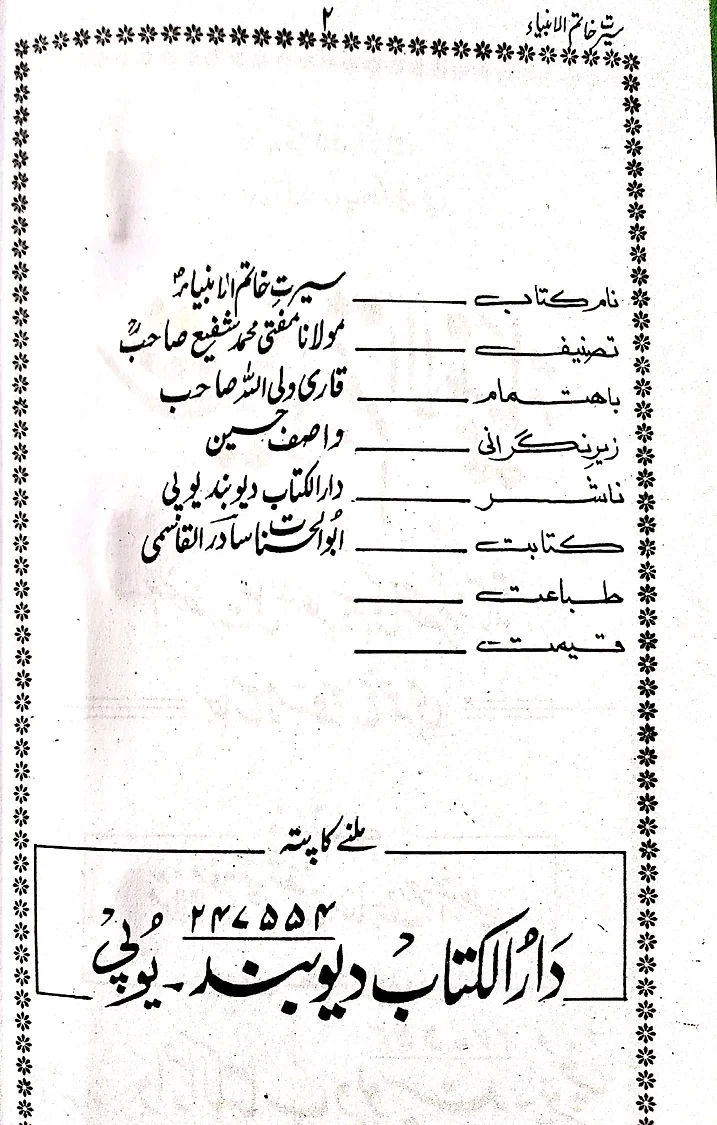 سیرت خاتم الانبیاء
۲
نام کتاب ـــــــ سیرتِ خاتم الانبیاءؐ
تصنیف ـــــــ مولانا مفتی محمد شفیع صاحبؒ
باھتمام ـــــــ قاری ولی اللہ صاحب
زیرِ نگرانی ـــــــ واصف حسین
ناشر ـــــــ دارالکتاب دیوبند یوپی
کتابت ـــــــ ابُوالحسنات القاسمی
طباعت ـــــــ
قیمت ـــــــ
ملنے کا پتہ
۲۴۷۵۵۴
دَارُالکتَابْ دیوبند۔ یُوپیْ